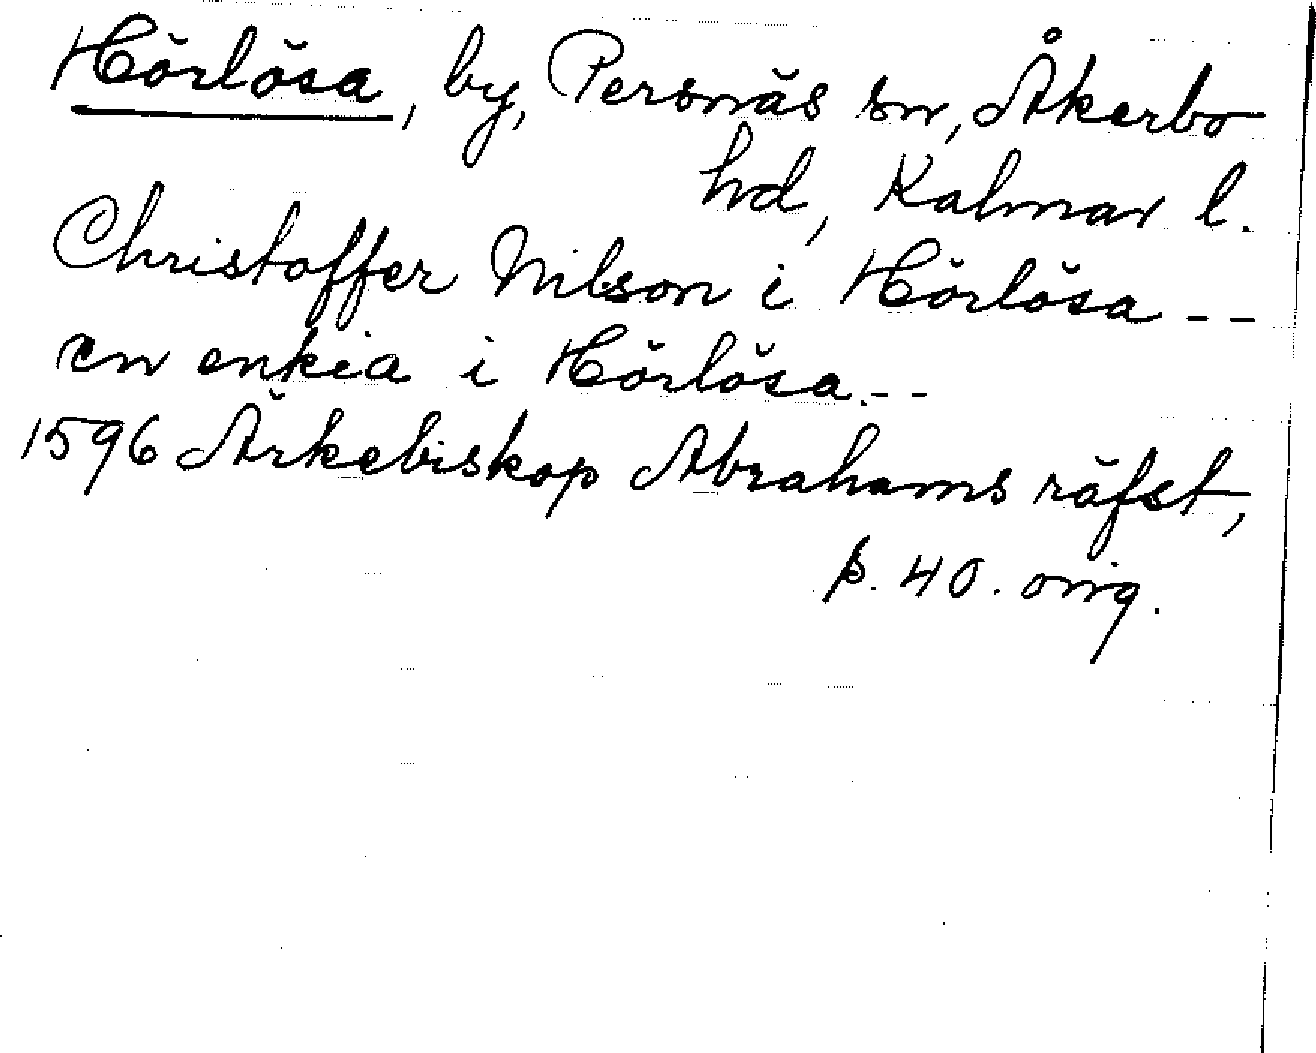 Hörlösa, by, Persnäs sn, Åkerbo
hd, Kalmar l.
Christoffer Nilson i Hörlösa --
en enkia i Hörlösa --
1596 Ärkebiskop Abrahams räfst,
p. 40. orig.